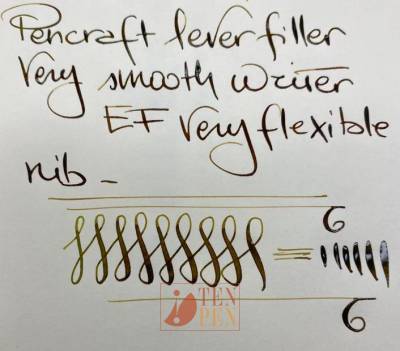 Pencraft lever filler
Very smooth writer
EF Very flexible
nib -
6
=
6
TEN
PEN